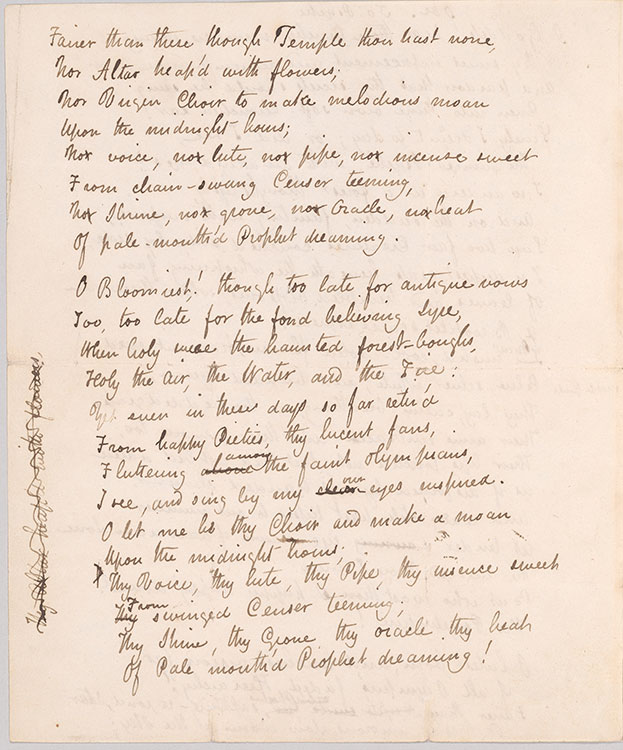 Fairer than these though Temple thou hast none,
Nor Altar heap'd with flowers;
Nor Virgin Choir to make melodious moan
Upon the midnight hours;
Nor voice, nor lute, nor pipe, nor incense sweet
From chain-swung Censer teeming,
Nor Shrine, nor grove, nor Oracle, nor heat
Of pale-mouth'd Prophet dreaming.
O Bloomiest! though too late for antique vows
Too, too late for the fond believing Lyre,
When holy were the haunted forest-boughs,
Holy the Air, the Water, and the Fire:
Yet even in these days so far retir'd
From happy Pieties, thy lucent fans,
Fluttering among the faint Olympians,
I see, and sing by my own eyes inspired.
O let me be thy Choir and make a moan
Upon the midnight hours;
Thy Voice, thy lute, thy Pipe, thy insence sweet
From swinged Censer teeming;
Thy Shrine, thy Grove thy oracle thy heat
Of Pale mouth'd Prophet dreaming!